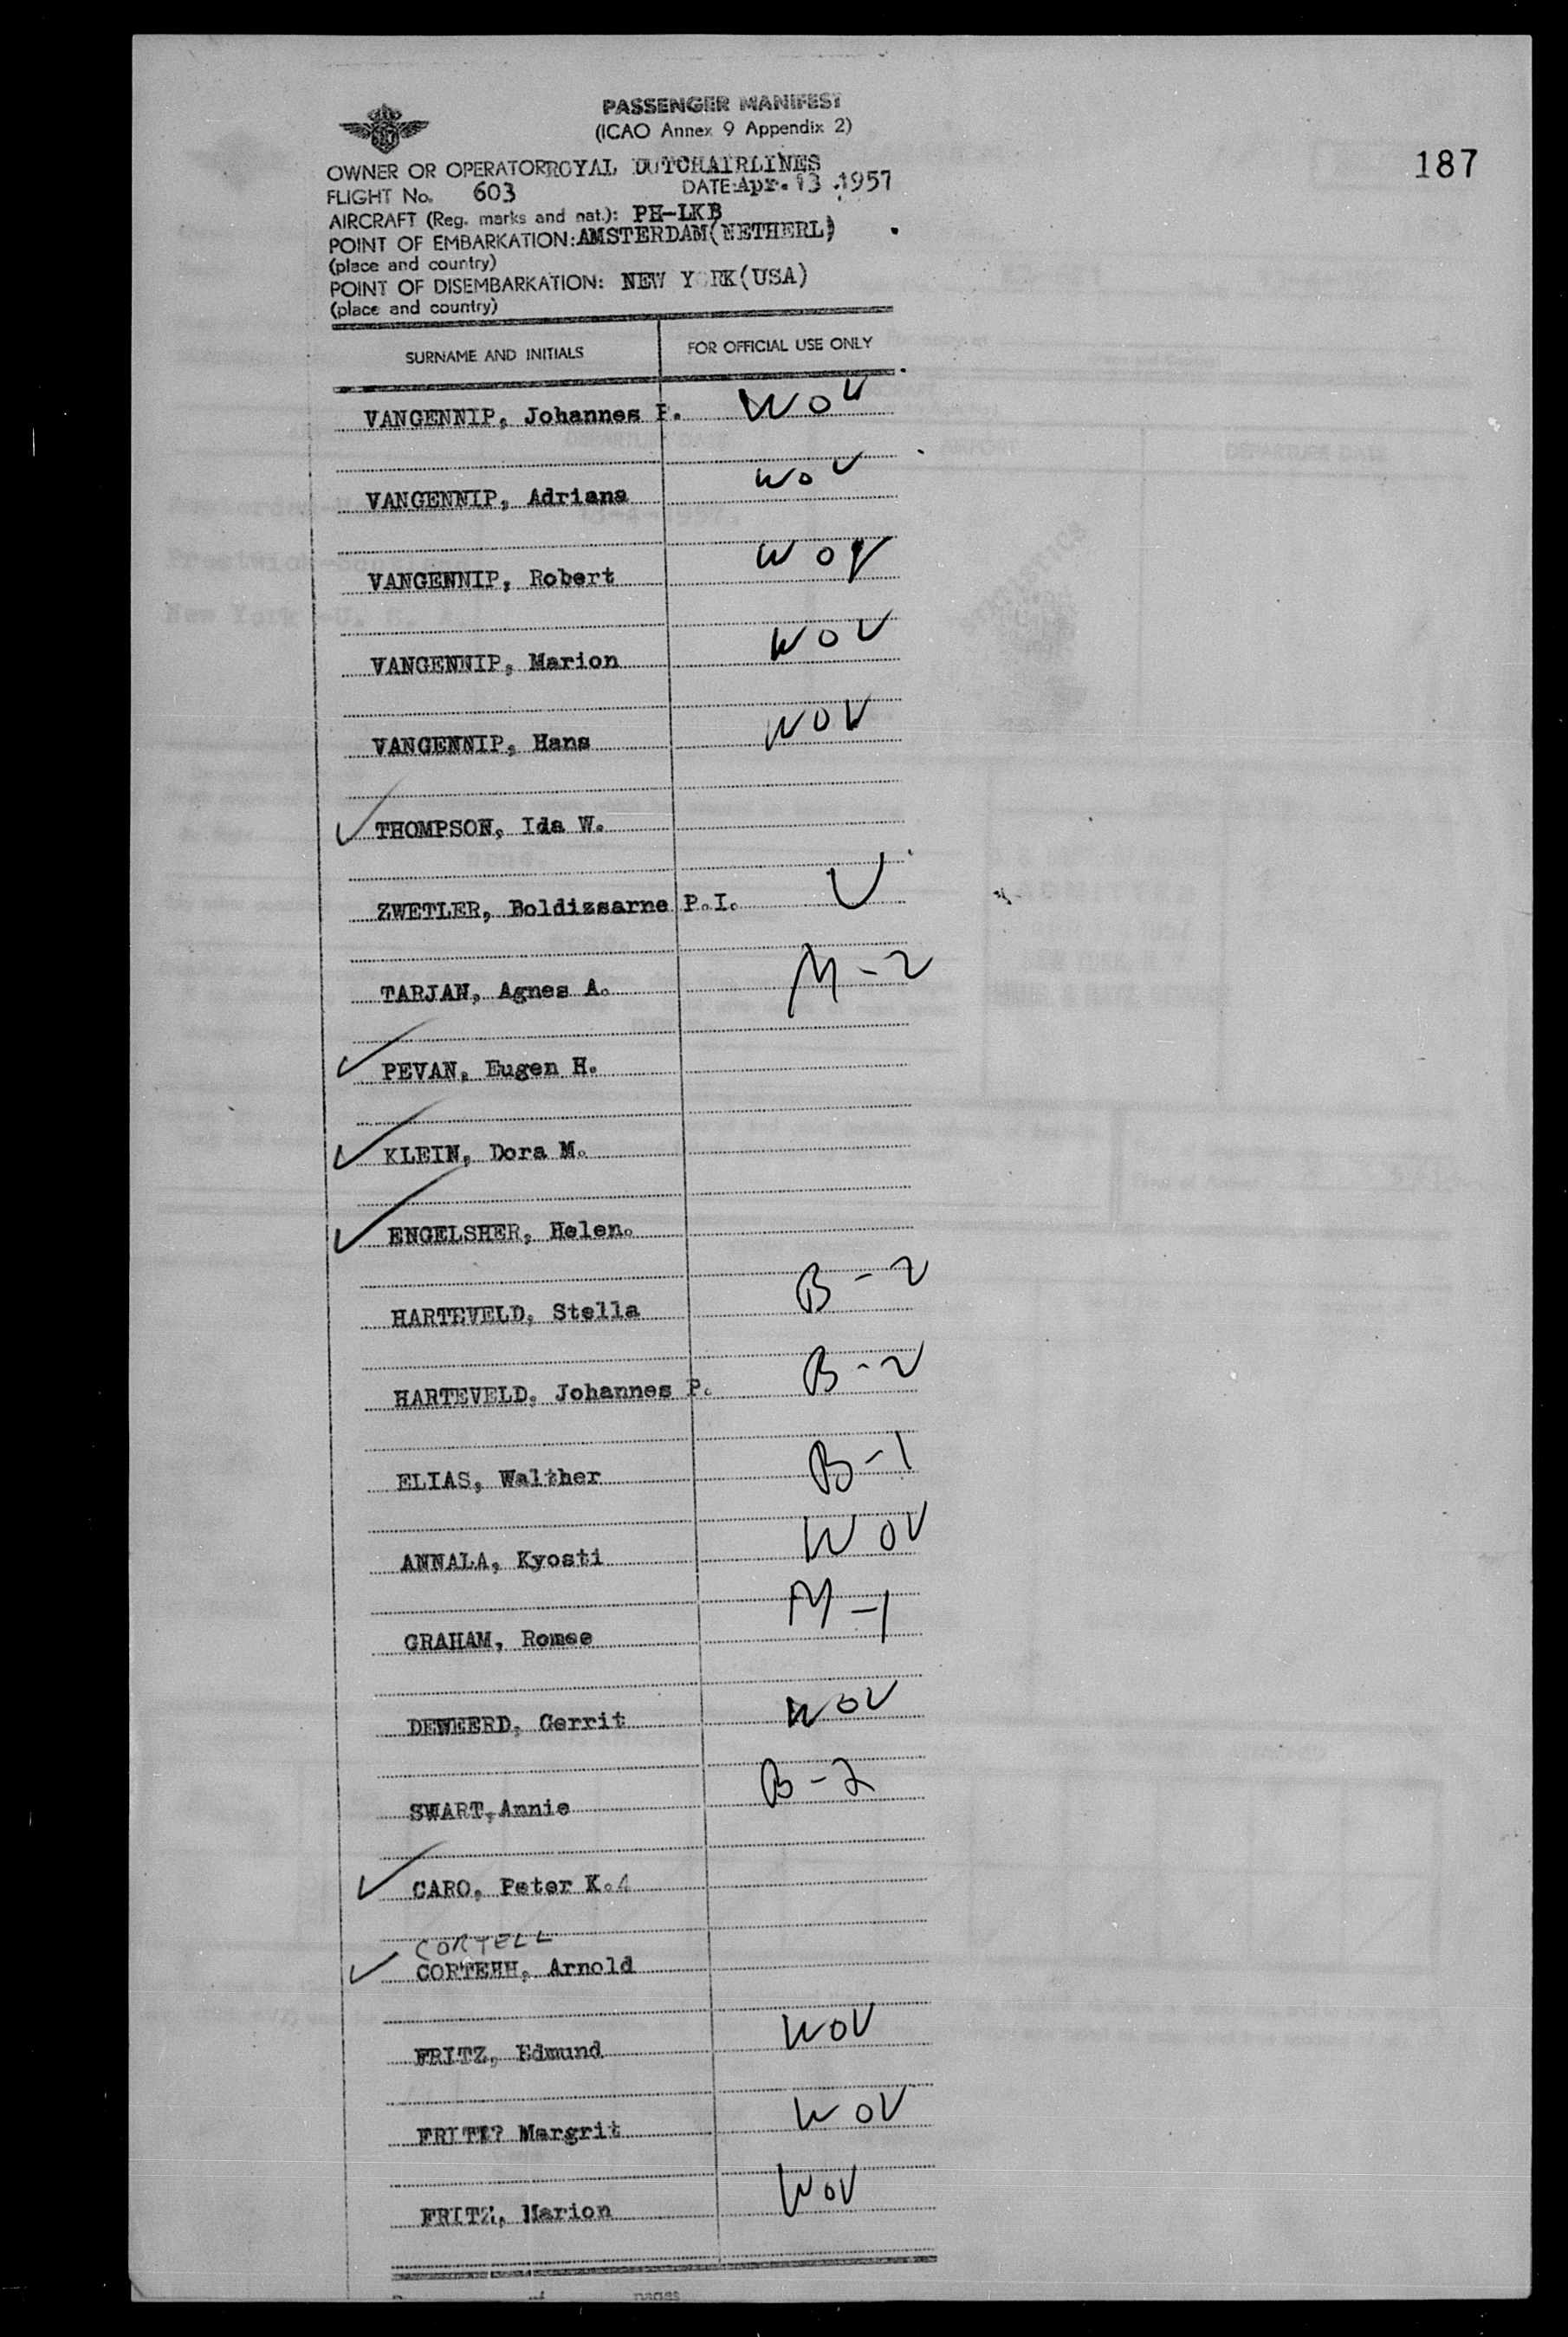 PASSENGER MANIFEST
(ICAO Annex 9 Appendix 2)
187
OWNER OR OPERATORROYAL DUTCHAIRLINES
FLIGHT No. 603 DATE:Apr. 13 .1957
AIRCRAFT (Reg. marks and nat.): PH-LKB
POINT OF EMBARKATION:AMSTERDAM(NETHERL)
(place and country)
POINT OF DISEMBARKATION: NEW YORK(USA)
(place and country)
SURNAME AND INITIALS FOR OFFICIAL USE ONLY
VANGENNIP, Johannes P. WOV
VANGENNIP, Adriana WOV
VANGENNIP, Robert WOV
VANGENNIP, Marion WOV
VANGENNIP, Hans WOV
THOMPSON, Ida W.
ZWETLER, Boldizsarne P.I. V
TARJAN, Agnes A. M-2
PEVAN, Eugen H.
KLEIN, Dora M.
ENGELSHER, Helen.
HARTEVELD, Stella B-2
HARTEVELD, Johannes P. B-2
ELIAS, Walther B-1
ANNALA, Kyosti WOV
GRAHAM, Romee M-1
DEWEERD, Gerrit WOV
SWART,Annie B-2
CARO, Peter K.
CORTELL
CORTEHH, Arnold
FRITZ, Edmund WOV
FRITZ? Margrit WOV
FRITZ, Marion WOV
pages